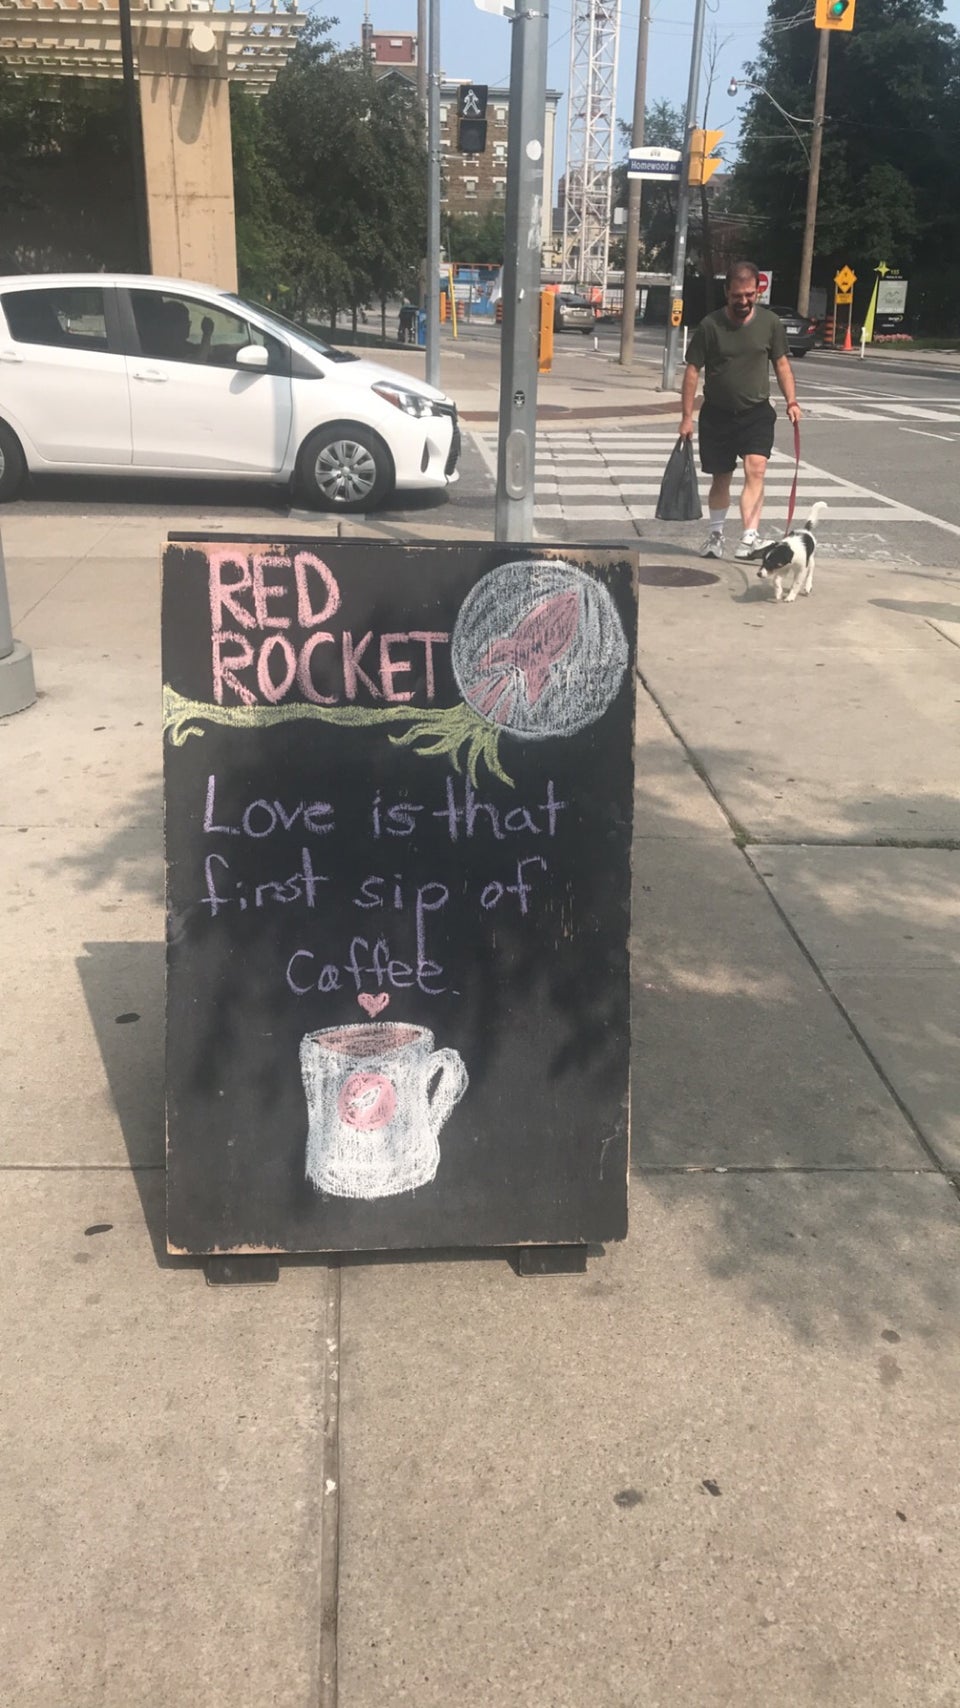 Homewood Av
RED
ROCKET
Love is that
first sip of
Coffee.